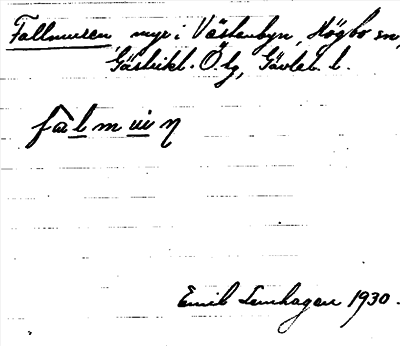 Fallmuren myr i Västerbyn, Högbo sn,
Gästrikl. Ö. tg, Gävleb. l.
falmuiŋ
Emil Lenhagen 1930.